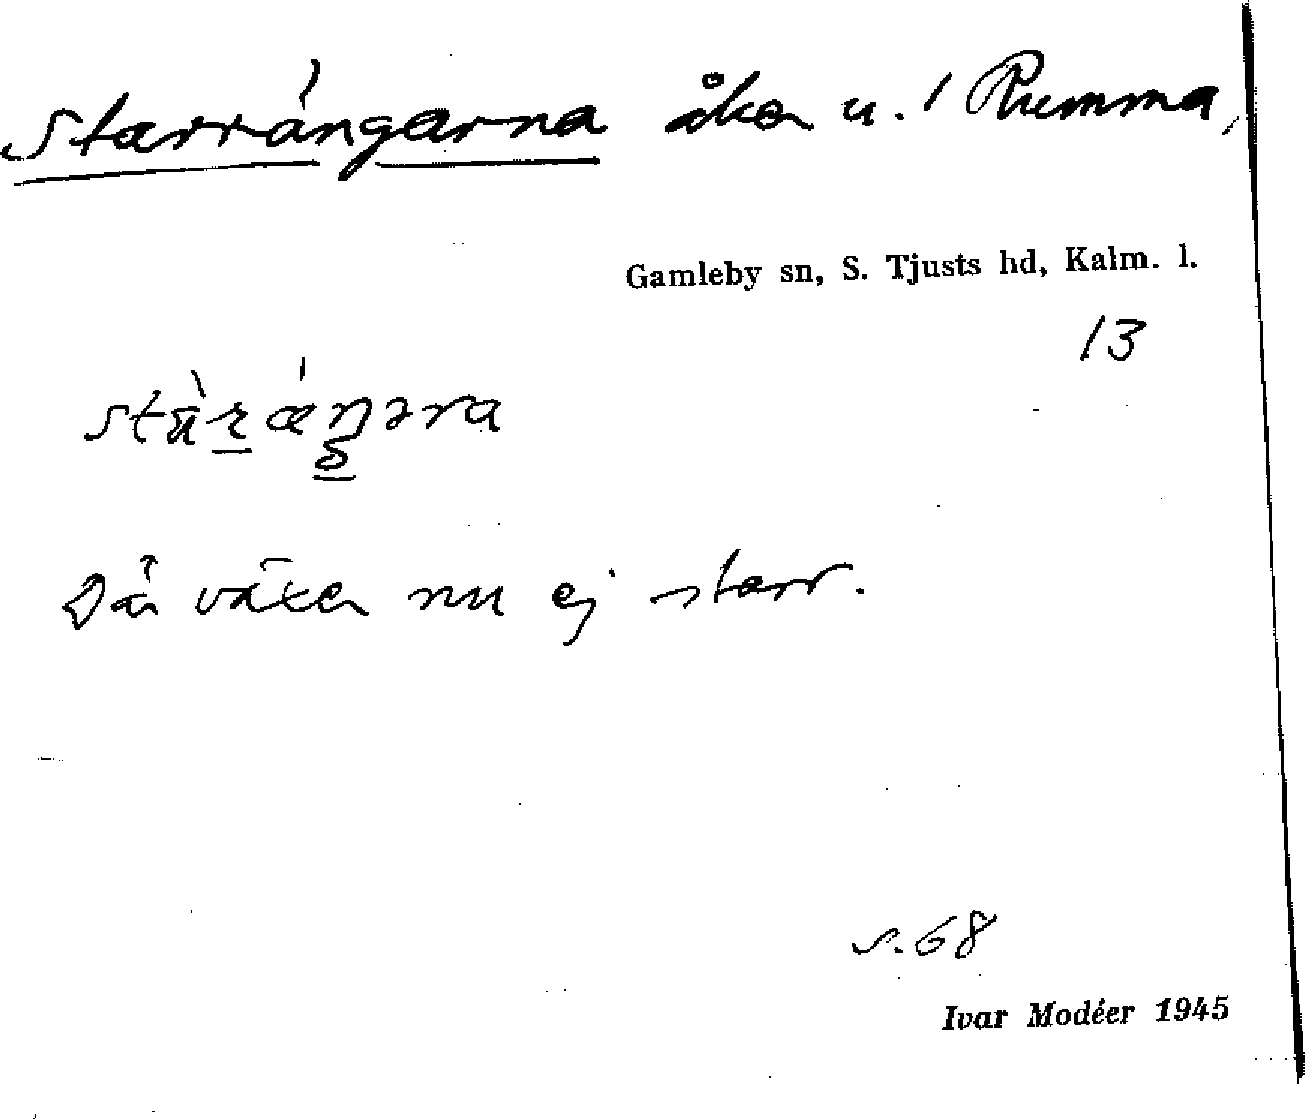 Starrängarna åker u. 1 Rumma,
Gamleby sn, S. Tjusts hd, Kalm. l.
13
Där växer nu ej starr.
s. 68
Ivar Modéer 1945